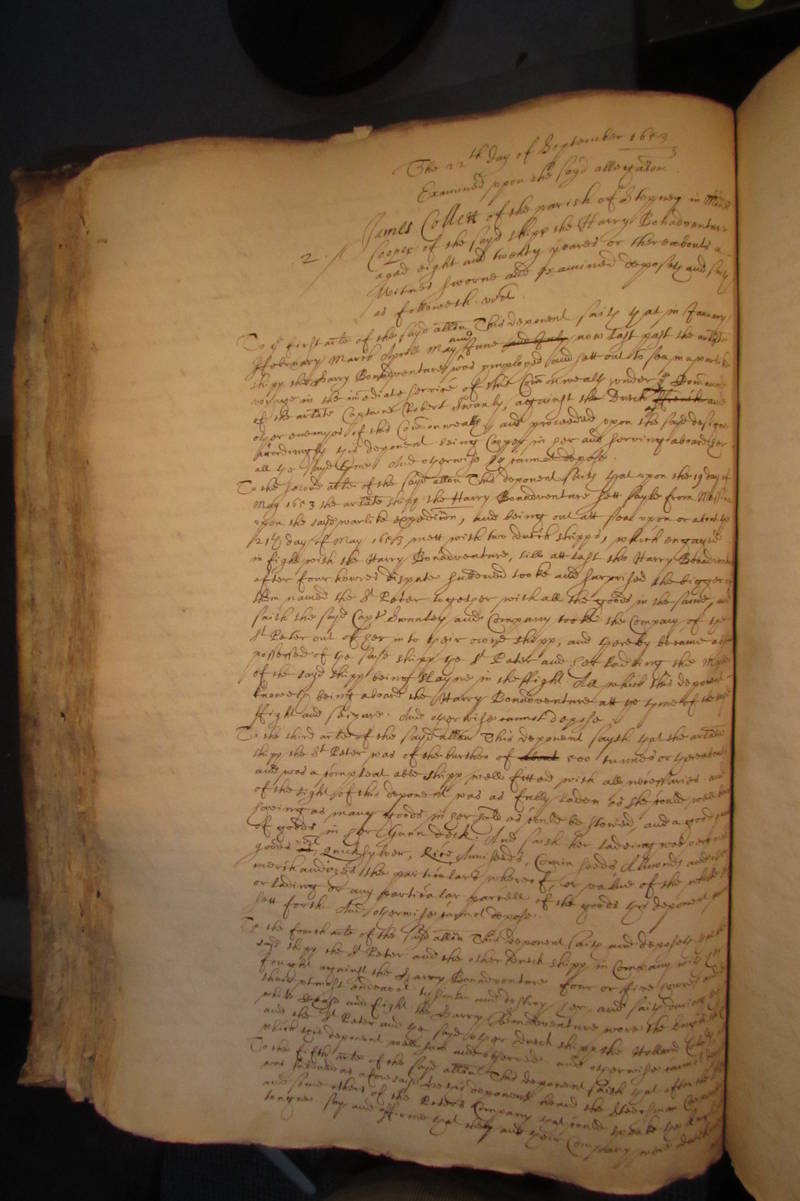 The 22th day of September 1653
Examined upon the sayd allegation.
2. James Collett of the parish of Stepney in
Cooper of the sayd shipp the Harry Bonadventure
aged eight and twenty yeares or thereabouts a
Witnes sworne and examined deposeth and saith
as followeth. vizt.
To the first arle of the sayd allon This deponent saith that in January
ffebruary March Aprill May and June and July now last past the arlate
shipp the Harry Bonadventure was imployed and sett out to sea in a warlike
voyage in the imediate service of this Comonwealth under the Command
of the arlate Captaine Robert Swanly, against the Dutch ffrench and
other enemyes of this Comonwealth, and proceeded upon the sayd designe
this deponent being Cooper in her and serving aboard her
all the sayd tyme. And otherwise he cannot depose.
To the second arle of the sayd allon This deponent saith that upon the 19 day of
May 1653 the arlate shipp the Harry Bonadventure sett sayle from
upon the sayd warlike expedition, and being out att sea upon or about the
day of May 1653 mett with two dutch shipps, which engaged
in fight with the Harry Bonadventure, till att last the Harry Bonadventure
after four houres dispute tooke and surprised the bigger of
them named the St Peter together with all the goods in the same, and
saith the sayd Capt Swanley and Company tooke the Company of the
St Peter out of her into their owne shipp, and thereby became
possessed of the said shipp the St Peter and her lading the
of the sayd shipp being slayne in the fight. All which this deponent
knoweth being aboard the Harry Bonadventure att the tyme of the sayd
ffight and seizure. And otherwise cannot depose.
To the third arle of the sayd allon This deponent sayth that the arlate
shipp the St Peter was of the burthen of about 500 tunnes or thereabouts
and was a compleat able shipp well fitted with all necessaries and
of the sight of this deponent was as fully laden as she could well be
having as many goods in her hold as could be stowed, and a good
of goods in her Gunn deck. And saith her ladeing was
goods vizt Quicksylver, Rice Anniseeds, Comin seeds Almonds and
merchandizes the particulars whereof, or value of the whole
or lading or any particular parcell of the goods this deponent
sett forth. And otherwise cannot depose.
To the fourth arle of the sayd allon This deponent saith and deposeth that the
sayd shipp the St Peter and the other dutch shipp in Company with her
fought against the Harry Bonadventure four or five houres and
their utmost endeavor to sinke and destroy her, and saith during
while dispute and fight the Harry Bonadventure wore the English
and the St Peter and the sayd other dutch shipp the Holland
which this deponent well saw and observed and otherwise cannot depose
To the fifth arle of the sayd allon This deponent saith that after the
was as aforesaid this deponent heard the Steersman
and some others of the Peters Company that could speake the
tongue say and affirme that they and their Company were